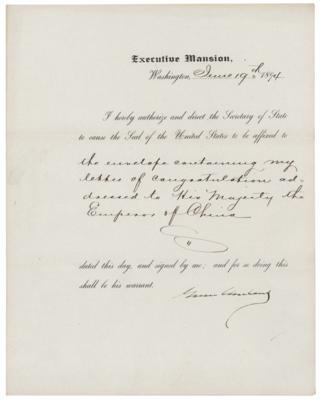 Executive Mansion,
Washington, June 19th 1894
I hereby authorize and direct the Secretary of State
to cause the Seal of the United States to be affixed to
the envelope containing my
letter of congratulation ad-
dressed to His Majesty the
Emperor of China
dated this day, and signed by me; and for so doing this
shall be his warrant.
Grover Cleveland